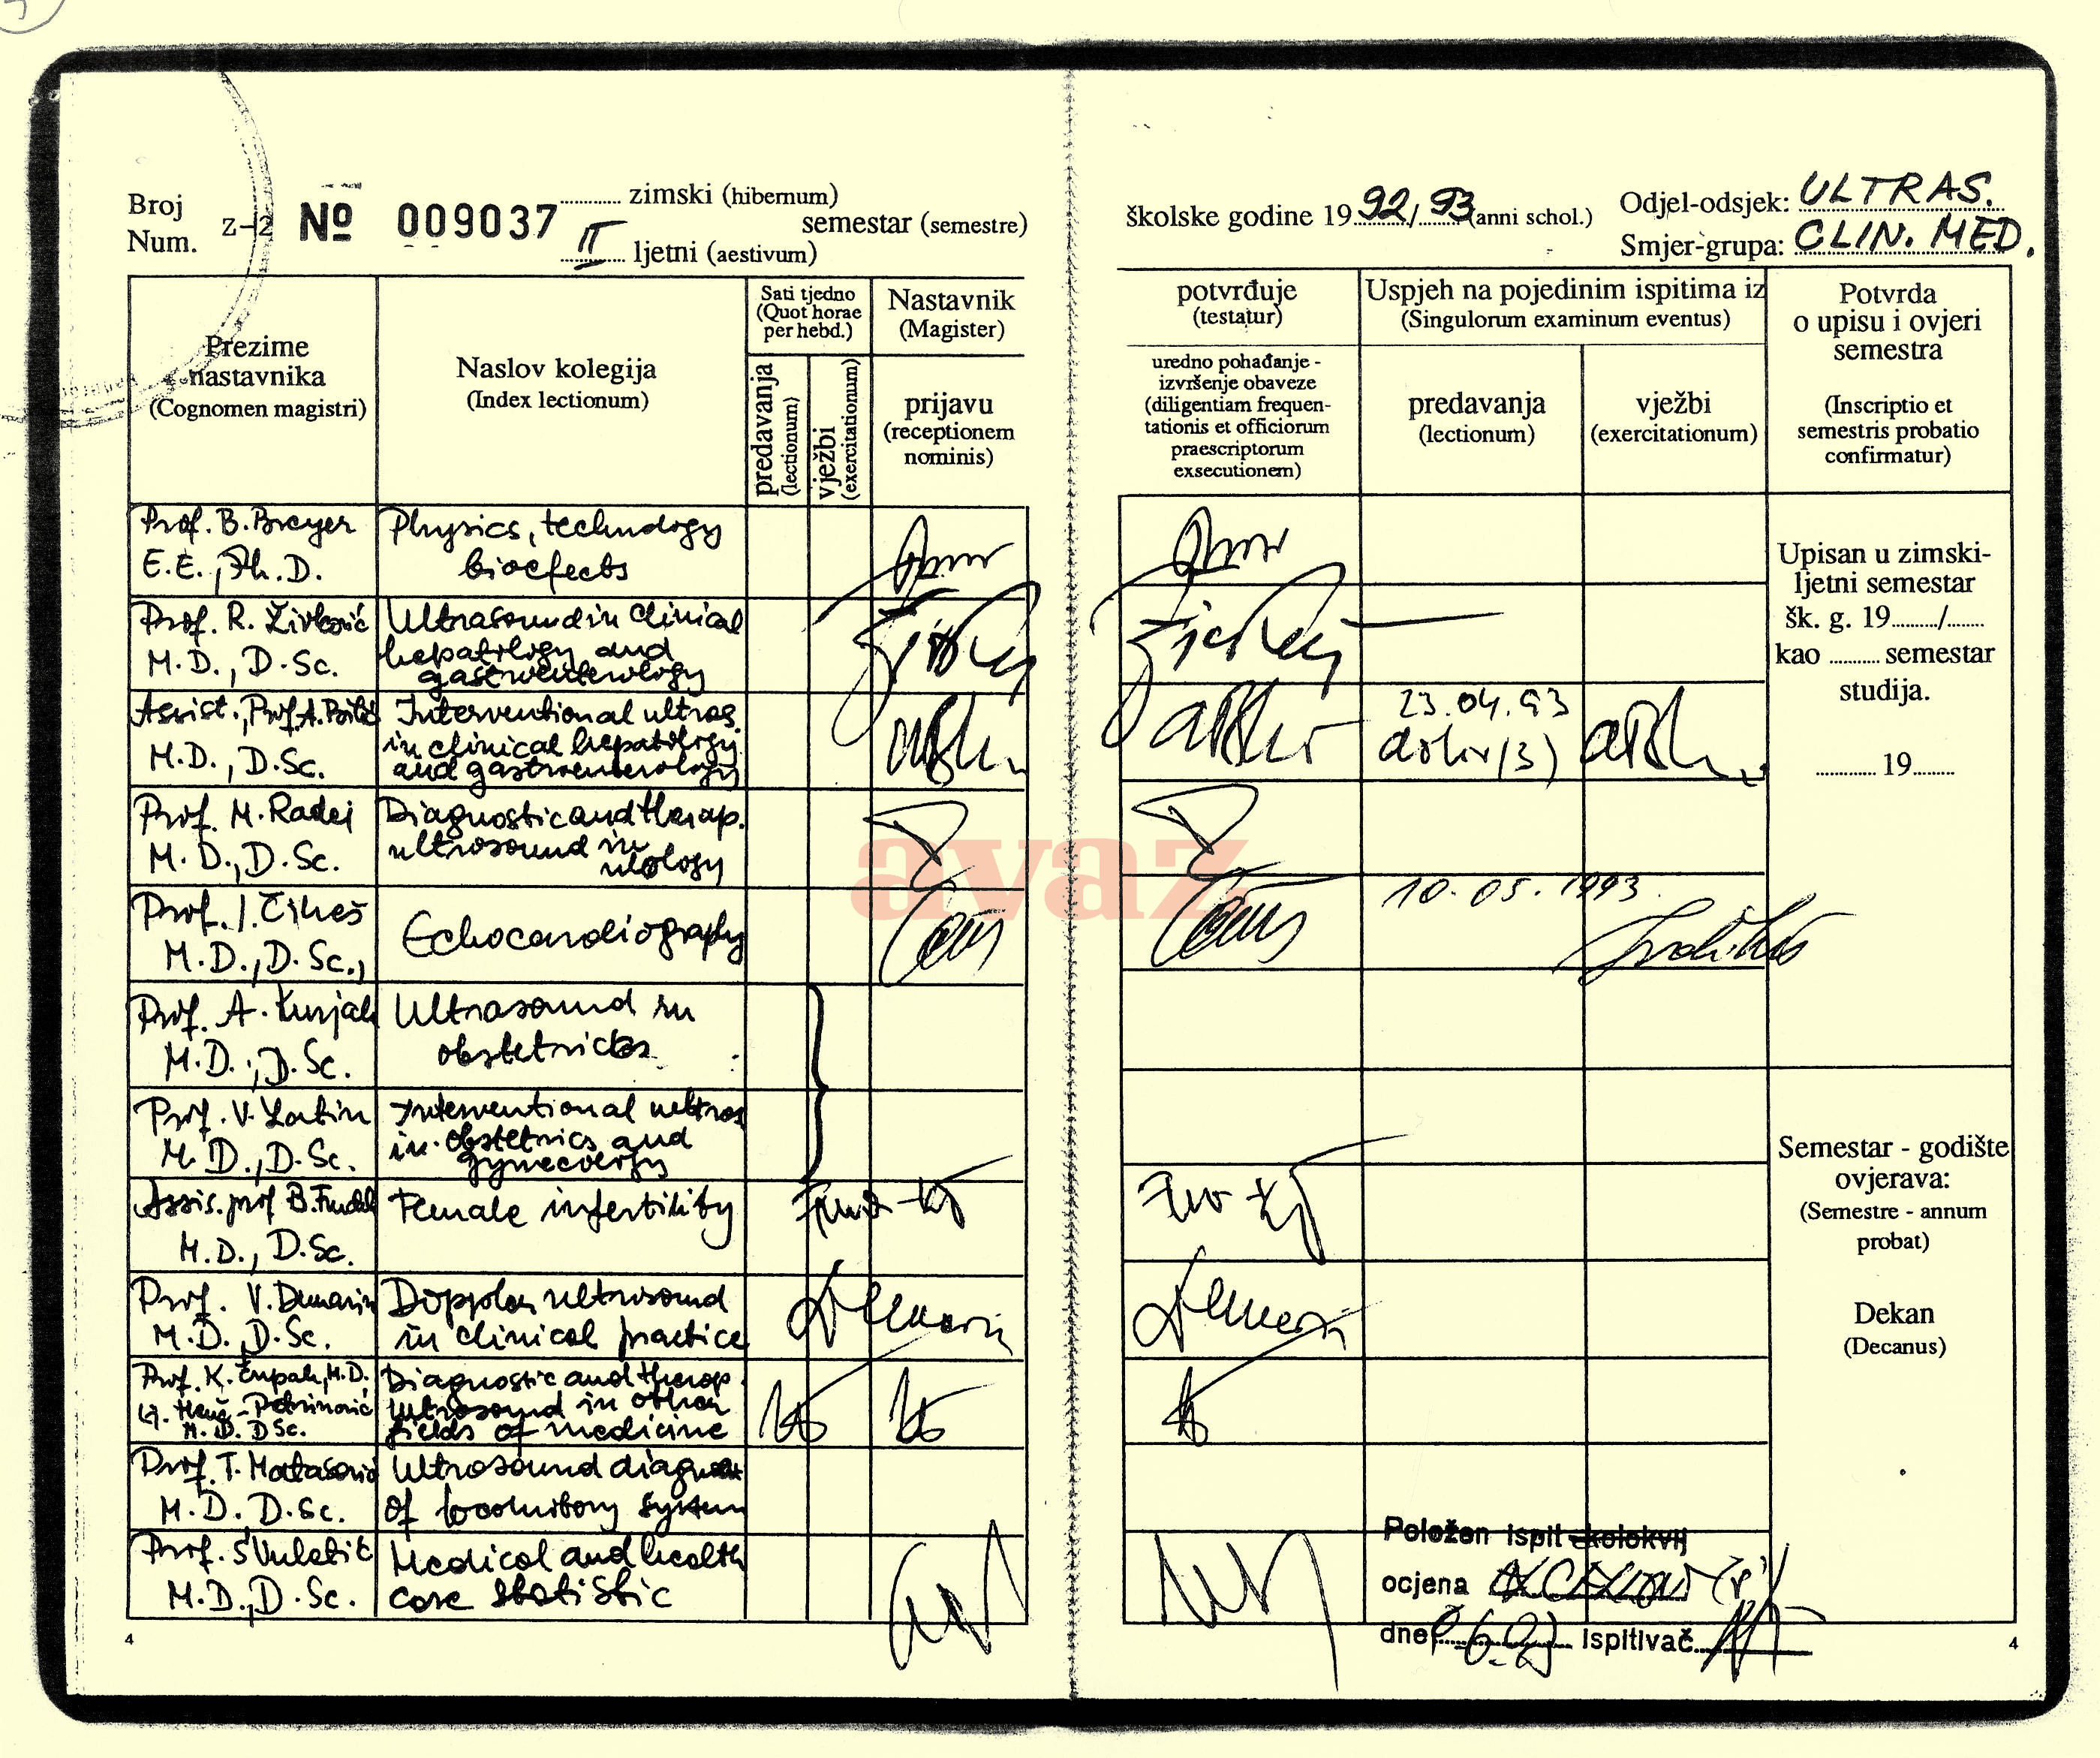 Broj
Num.
Z-2 № 009037
zimski (hibernum)
II
semestar (semestre)
ljetni (aestivum)
Prezime
nastavnika
(Cognomen magistri)
Naslov kolegija
(Index lectionum)
Sati tjedno
(Quot horae
per hebd.)
predavanja
(lectionum)
vježbi
(exercitationum)
Nastavnik
(Magister)
prijavu
(receptionem
nominis)
Prof. B. Breyer
E.E., Ph.D.
Physics, technology
bioefects
Prof. R. Živković
M.D., D.Sc.
Ultrasound in clinical
hepatology and
gastroenterology
Assist., Prof. A. Bilić
M.D., D.Sc.
Interventional ultras.
in clinical hepatology
and gastroenterology
Prof. M. Radej
M.D., D.Sc.
Diagnostic and therap.
ultrasound in
urology
Prof. I. Čikeš
M.D., D.Sc.,
Echocardiography
Prof. A. Kurjak
M.D., D.Sc.
Ultrasound in
obstetrics
Prof. V. Latin
M.D., D.Sc.
Interventional ultras
in obstetrics and
gynecology
Assis. prof B.
M.D., D.Sc.
Female infertility
Prof. V. Demarin
M.D., D.Sc.
Doppler ultrasound
in clinical practice
Prof. K. Čupak, M.D.
M.D. DSc.
Diagnostic and therap.
ultrasound in other
fields of medicine
Prof. T. Matasović
M.D. D.Sc.
Ultrasound
of system
Prof. S. Vuletić
M.D., D.Sc.
Medical and health
care statistic
4
školske godine 1992/93 (anni schol.)
Odjel-odsjek: ULTRAS.
Smjer-grupa: CLIN. MED.
potvrđuje
(testatur)
uredno pohađanje -
izvršenje obaveze
(diligentiam frequen-
tationis et officiorum
praescriptorum
exsecutionem)
Uspjeh na pojedinim ispitima iz
(Singulorum examinum eventus)
predavanja
(lectionum)
vježbi
(exercitationum)
Potvrda
o upisu i ovjeri
semestra
(Inscriptio et
semestris probatio
confirmatur)
23.04.93
(3)
10.05.1993.
Upisan u zimski-
ljetni semestar
šk. g. 19......../........
kao .......... semestar
studija.
............ 19........
Semestar - godište
ovjerava:
(Semestre - annum
probat)
Dekan
(Decanus)
Položen ispit kolokvij
ocjena
dne
ispitivač
4
avaz